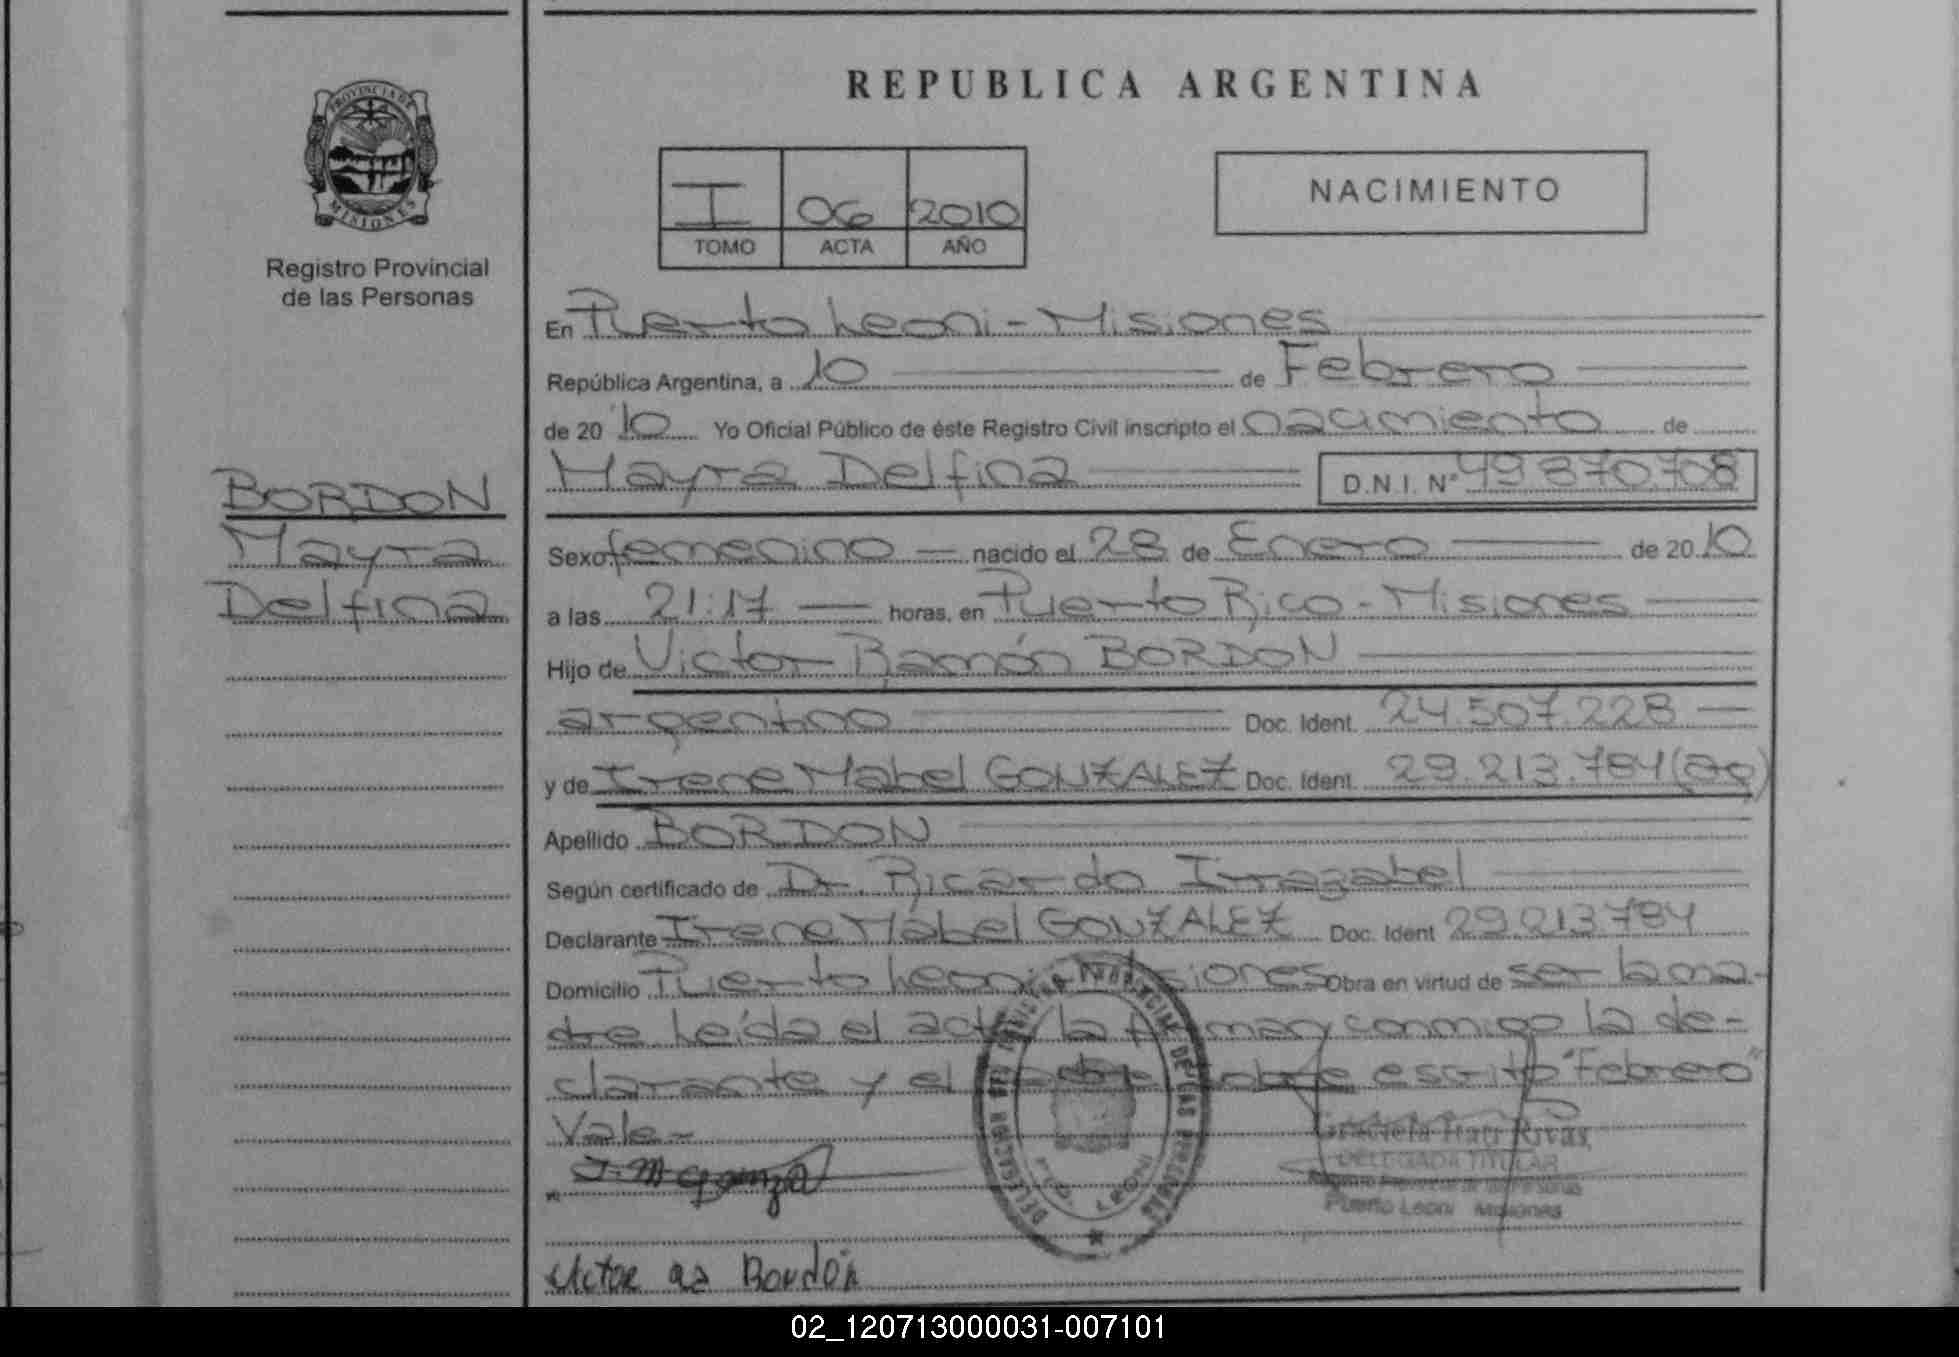 REPUBLICA ARGENTINA
PROVINCIA DE
MISIONES
Registro Provincial
de las Personas
I 06 2010
TOMO ACTA AÑO
NACIMIENTO
BORDON
Mayra
Delfina
En Puerto Leoni - Misiones
República Argentina, a 10 de Febrero
de 20 10 Yo Oficial Público de éste Registro Civil inscripto el nacimiento de
Mayra Delfina D.N.I. N° 49 870.708
Sexo femenino nacido el 28 de Enero de 20 10
a las 21:17 horas, en Puerto Rico - Misiones
Hijo de Victor Ramón BORDON
argentino Doc. Ident. 24.507.228
y de Irene Mabel GONZALEZ Doc. Ident. 29.213.784 (ag)
Apellido BORDON
Según certificado de Dr. Ricardo Irrazabel
Declarante Irene Mabel GONZALEZ Doc. Ident 29.213.784
Domicilio Puerto Leoni - Misiones Obra en virtud de ser la ma-
dre Leída el acta la firman conmigo la de-
clarante y el padre sobre escrito "Febrero"
Vale-
Graciela Itati Rivas
DELEGADA TITULAR
Registro Provincial de las Personas
Puerto Leoni Misiones
DELEGACION DEL REGISTRO PROVINCIAL DE LAS PERSONAS
PTO. LEONI
Bordón
02_120713000031-007101